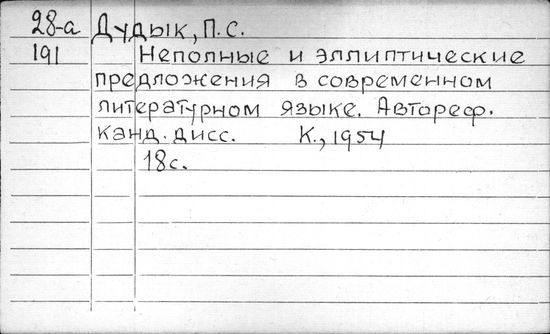 28-а Дудык, П.С.
191 Неполные и эллиптические
предложения в современном
литературном языке. Автореф.
канд. дисс. К., 1954
18с.